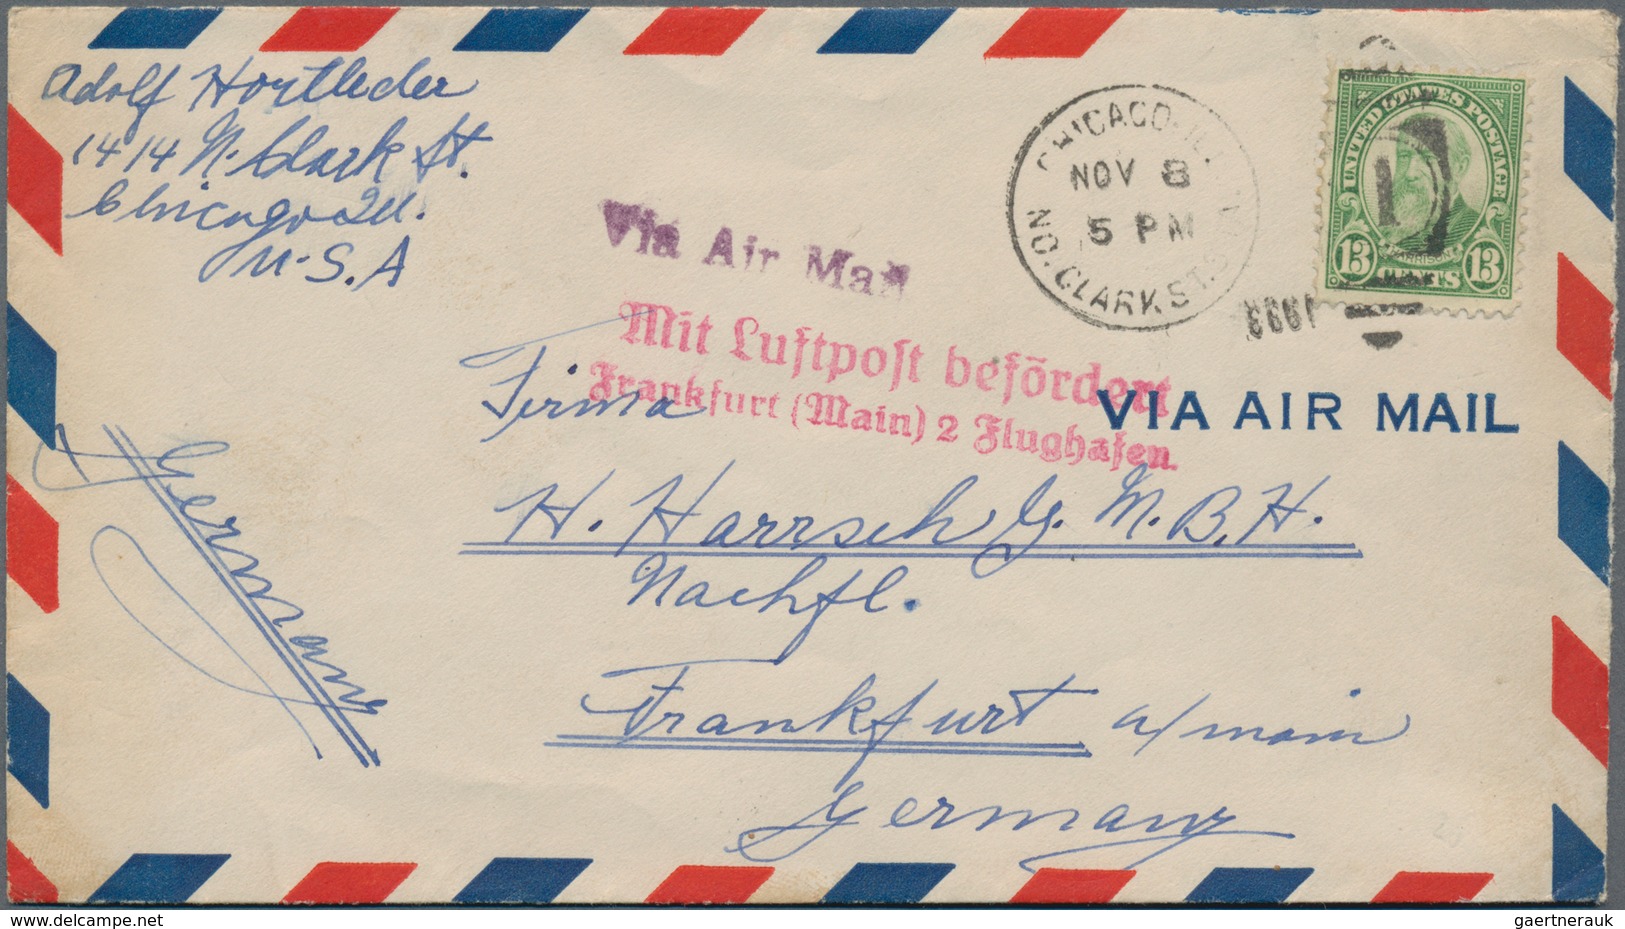 Adolf Hortleder
1414 N. Clark St.
Chicago Ill.
U.S.A
CHICAGO, ILL.
NOV 8
5 PM
NO. CLARK ST.
1933
UNITED STATES POSTAGE
HARRISON
13 CENTS 13
Via Air Mail
Mit Luftpost befördert
Frankfurt (Main) 2 Flughafen.
VIA AIR MAIL
Firma
H. Harrsch G.M.B.H.
Nachfl.
Frankfurt a/main
Germany
Germany
www.delcampe.net
gaertnerauk